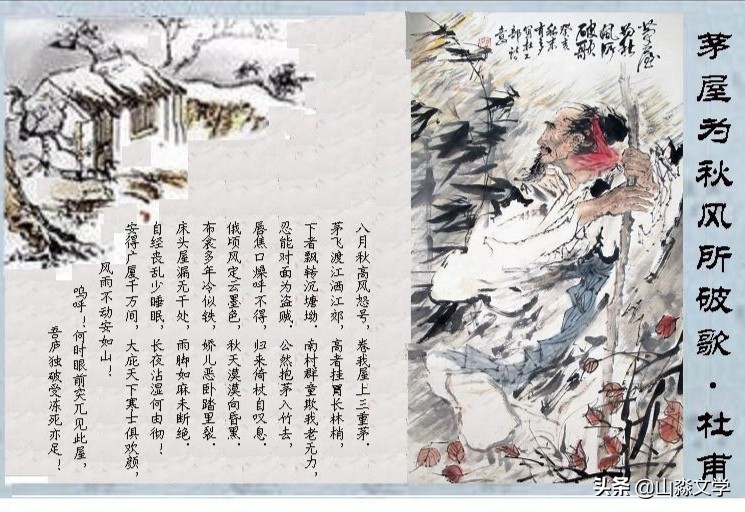 茅屋为秋风所破歌·杜甫
茅屋
为秋
风所
破歌
癸亥
秋末
八月秋高风怒号，卷我屋上三重茅.
茅飞渡江洒江郊，高者挂罥长林梢，
下者飘转沉塘坳.南村群童欺我老无力，
忍能对面为盗贼.公然抱茅入竹去，
唇焦口燥呼不得，归来倚杖自叹息.
俄顷风定云墨色，秋天漠漠向昏黑.
布衾多年冷似铁，娇儿恶卧踏里裂.
床头屋漏无干处，雨脚如麻未断绝.
自经丧乱少睡眠，长夜沾湿何由彻！
安得广厦千万间，大庇天下寒士俱欢颜，
风雨不动安如山！
呜呼！何时眼前突兀见此屋，
吾庐独破受冻死亦足！
头条@山淼文学